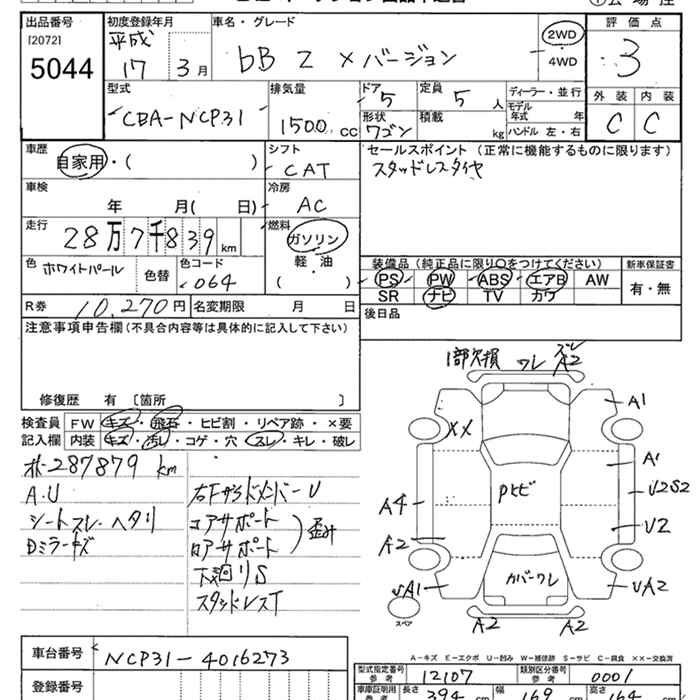 出品番号
[2072]
5044
初度登録年月
平成
17 3月
車名・グレード
bB Z Xバージョン
2WD
4WD
評価点
3
型式
CBA-NCP31
排気量
1500 cc
ドア 5
定員 5 人
ディーラー・並行
モデル年式 年
ハンドル 左・右
形状 ワゴン
積載 kg
外装 内装
C C
車歴
自家用・( )
シフト
CAT
車検
年 月( 日)
冷房
AC
走行
28万7千839 km
燃料
ガソリン
軽・油
( )
色 ホワイトパール
色替
色コード
064
R券 10,270円
名変期限 月 日
セールスポイント (正常に機能するものに限ります)
スタッドレスタイヤ
装備品 (純正品に限り○をつけてください)
PS PW ABS エアB AW
SR ナビ TV カワ
新車保証書
有・無
後日品
注意事項申告欄 (不具合内容等は具体的に記入して下さい)
修復歴 有 〔箇所 〕
検査員記入欄
FW キズ・飛石・ヒビ割・リペア跡・×要
内装 キズ・汚レ・コゲ・穴・スレ・キレ・破レ
287879 km
A.U
シートスレ ヘタリ
Dミラーキズ
コアサポート
下廻りS
スタッドレスT
1部欠損 ワレ ズレ A2
A1
XX
A1
Pヒビ
U2S2
A4
U2
A2
カバーワレ
A1
A2
スペア
A2 A2
A-キズ E-エクボ U-凹み W-補修跡 S-サビ C-腐食 XX-交換済
車台番号
NCP31-4016273
登録番号
型式指定番号 参考
12107
類別区分番号 参考
0001
車庫証明用 参考
長さ 394 cm
幅 169 cm
高さ 164 cm